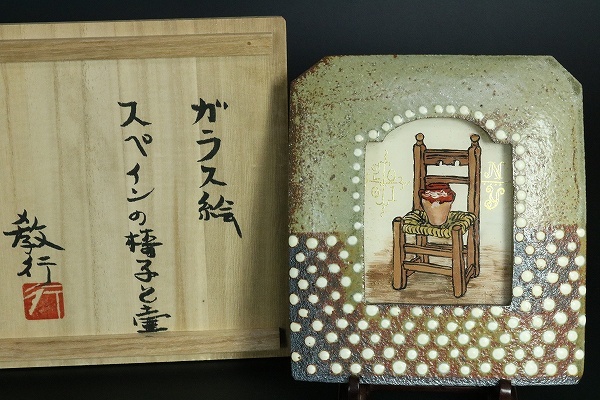 ガラス絵
スペインの椅子と壷
教行
行
N
Y